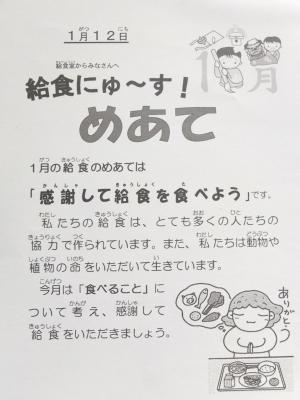 1月12日
給食室からみなさんへ
給食にゅ〜す!
1月
めあて
1月の給食のめあては
「感謝して給食を食べよう」です。
私たちの給食は、とても多くの人たちの
協力で作られています。また、私たちは動物や
植物の命をいただいて生きています。
今月は「食べること」に
ついて考え、感謝して
給食をいただきましょう。
ありがとう